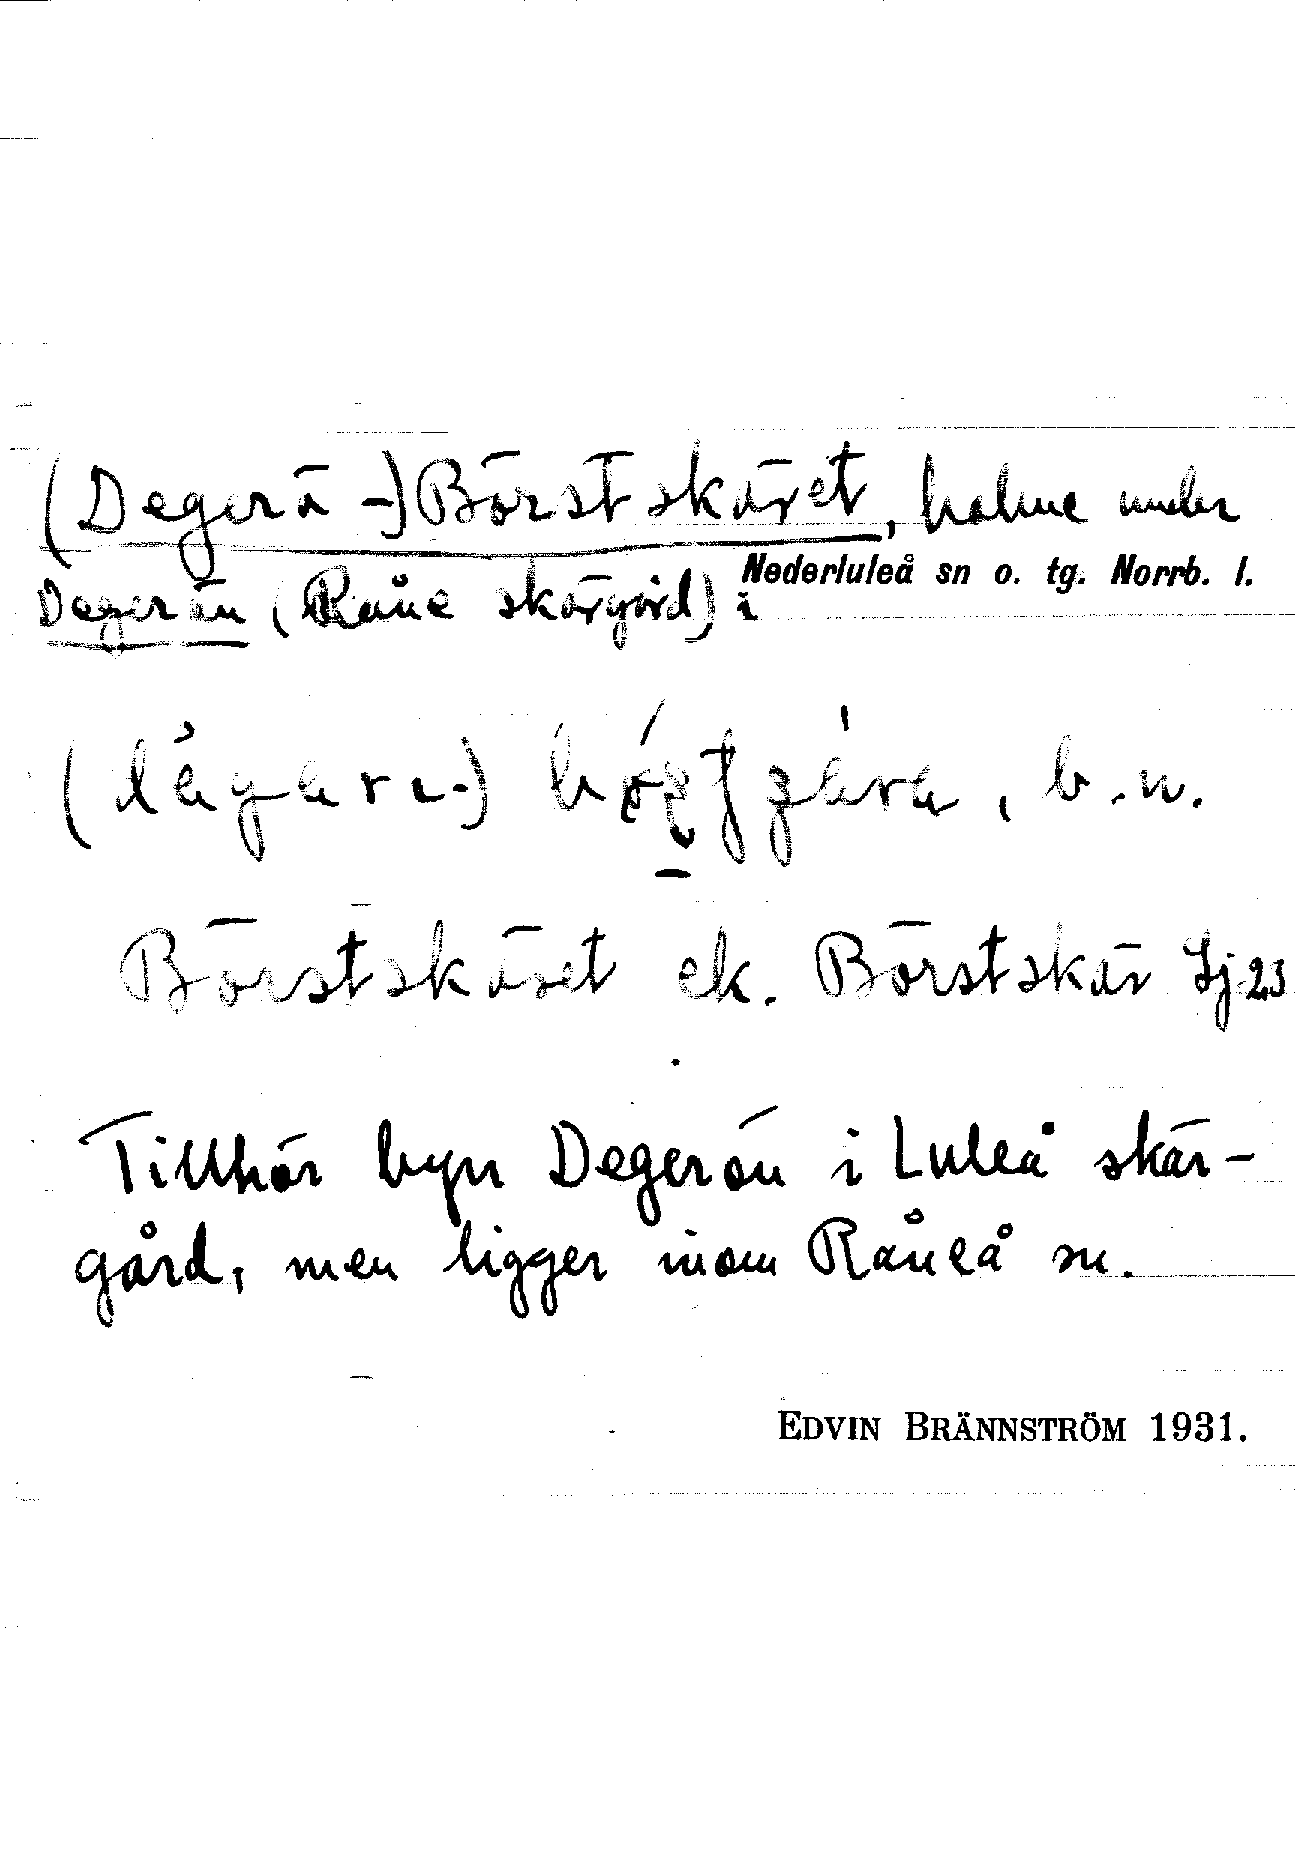 (Degerö-)Börstskäret, holme under
Nederluleå sn o. tg. Norrb. l.
Degerön (Råne skärgård) i
b.n.
Börstskäret ek. Börstskär Sj 23
Tillhör byn Degerön i Luleå skär-
gård, men ligger inom Råneå sn.
EDVIN BRÄNNSTRÖM 1931.